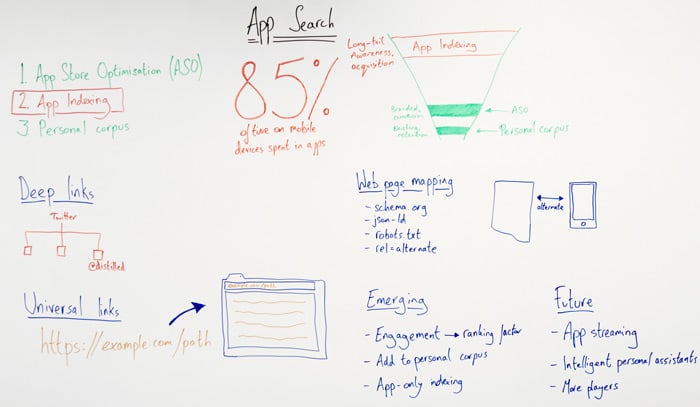 App Search
1. App Store Optimisation (ASO)
2. App Indexing
3. Personal corpus
85%
of time on mobile
devices spent in apps
Long-tail
Awareness,
acquisition
App Indexing
Branded,
ASO
Existing,
retention
Personal corpus
Deep links
Twitter
@distilled
Web page mapping
- schema.org
- json-ld
- robots.txt
- rel=alternate
alternate
Universal links
https://example.com/path
example.com/path
Emerging
- Engagement → ranking factor
- Add to personal corpus
- App-only indexing
Future
- App streaming
- Intelligent personal assistants
- More players